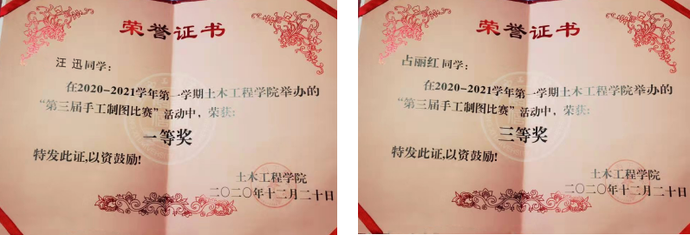 荣誉证书
汪 迅同学：
在2020-2021学年第一学期土木工程学院举办的
“第三届手工制图比赛”活动中，荣获：
一等奖
特发此证，以资鼓励！
土木工程学院
二〇二〇年十二月二十日
荣誉证书
占丽红同学：
在2020-2021学年第一学期土木工程学院举办的
“第三届手工制图比赛”活动中，荣获：
三等奖
特发此证，以资鼓励！
土木工程学院
二〇二〇年十二月二十日